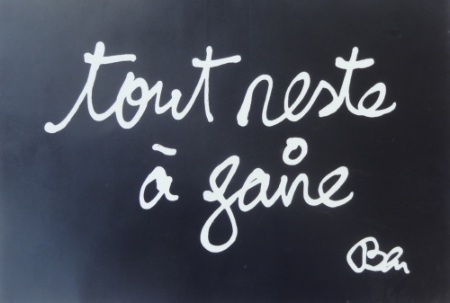 tout reste
à faire
Ben